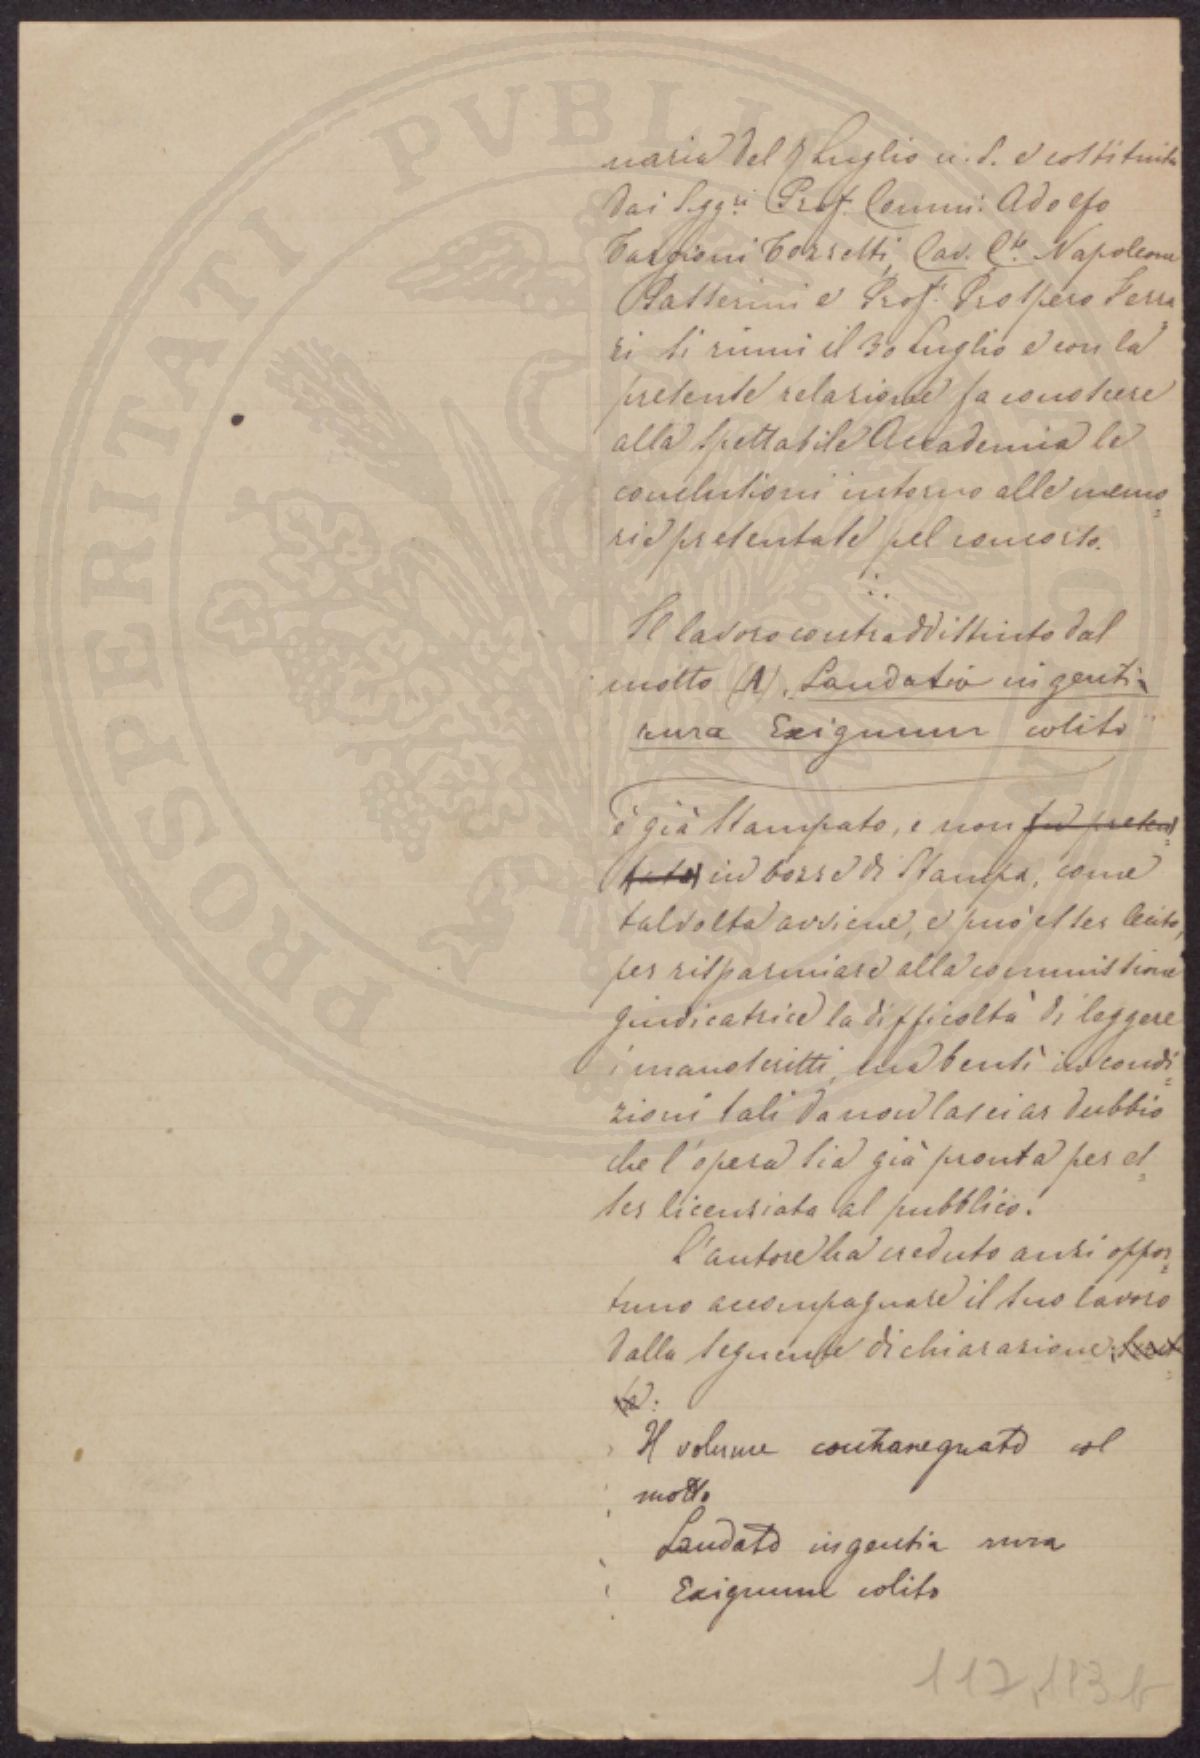 naria del 7 Luglio u. s. e costituita
dai Sigg.ri Prof. Comm. Adolfo
Targioni Tozzetti, Cav. C.te Napoleone
Passerini e Prof. Prospero Ferra
ri si riunì il 30 Luglio e con la
presente relazione fa conoscere
alla spettabile Accademia le
conclusioni intorno alle memo=
rie presentate pel concorso.
Il lavoro contraddistinto dal
motto (A) "Laudatio ingentia
rura Exiguum colito"
è già stampato, e non fu presen=
tato in bozze di stampa, come
talvolta avviene, e può esser lecito,
per risparmiare alla commissione
giudicatrice la difficoltà di leggere
i manoscritti, ma bensì in condi=
zioni tali da non lasciar dubbio
che l'opera sia già pronta per es=
ser licenziata al pubblico.
L'autore ha creduto anzi oppor=
tuno accompagnare il suo lavoro
dalla seguente dichiarazione
Il volume contrasegnato col
motto
Laudato ingentia rura
Exiguum colito
117,183 b
PROSPERITATI PVBLICAE